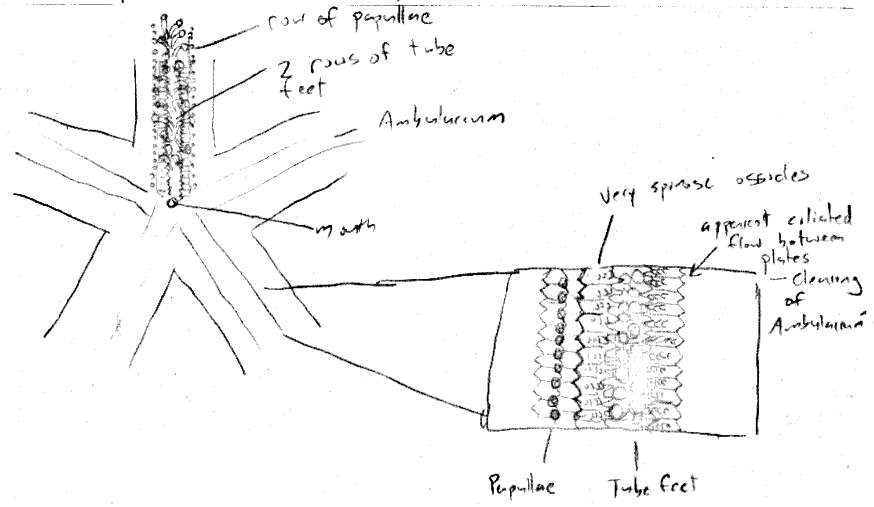 row of papullae
2 rows of tube
feet
Ambulacrum
mouth
Very spinose ossicles
apparent ciliated
flow between
plates
- Cleaning
of
Ambulacrum
Papullae
Tube feet